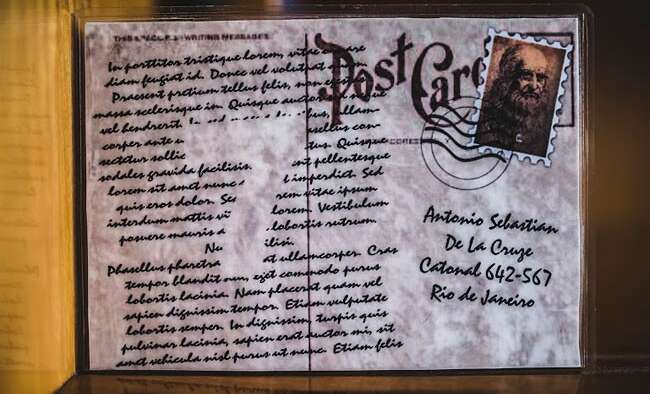 THIS SPACE FOR WRITING MESSAGES
Post Card
In porttitor tristique lorem, vitae ornare
diam feugiat id. Donec vel volutpat
Praesent pretium tellus felis, non
massa scelerisque in. Quisque auctor
vel hendrerit. In
corper ante
ullam-
sectetur sollic
sodales gravida facilisis.
lorem sit amet nunc
quis eros dolor. Ses
interdum mattis vi
posuere mauris a
Nu
asellus con-
tus. Quisque
nt pellentesque
t imperdiet. Sed
rem vitae ipsum
lorem. Vestibulum
lobortis rutrum
ilisi.
at ullamcorper. Cras
Phasellus pharetra
tempor blandit nunc, eget commodo purus
lobortis lacinia. Nam placerat quam vel
sapien dignissim tempor. Etiam vulputate
lobortis semper. In dignissim, turpis quis
pulvinar lacinia, sapien erat auctor mi, sit
amet vehicula nisl purus ut nunc. Etiam felis
Antonio Sebastian
De La Cruze
Catonal 642-567
Rio de Janeiro